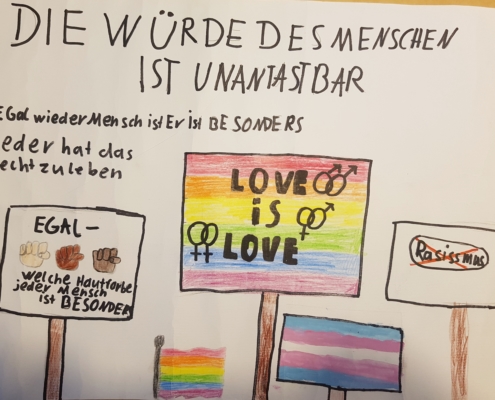 DIE WÜRDE DES MENSCHEN
IST UNANTASTBAR
EGal wie der Mensch ist Er ist BESONDERS
eder hat das
echt zu leben
LOVE
iS
LOVE
EGAL-
Welche Hautfarbe
jeder Mensch
ist BESONDER
Rasissmus